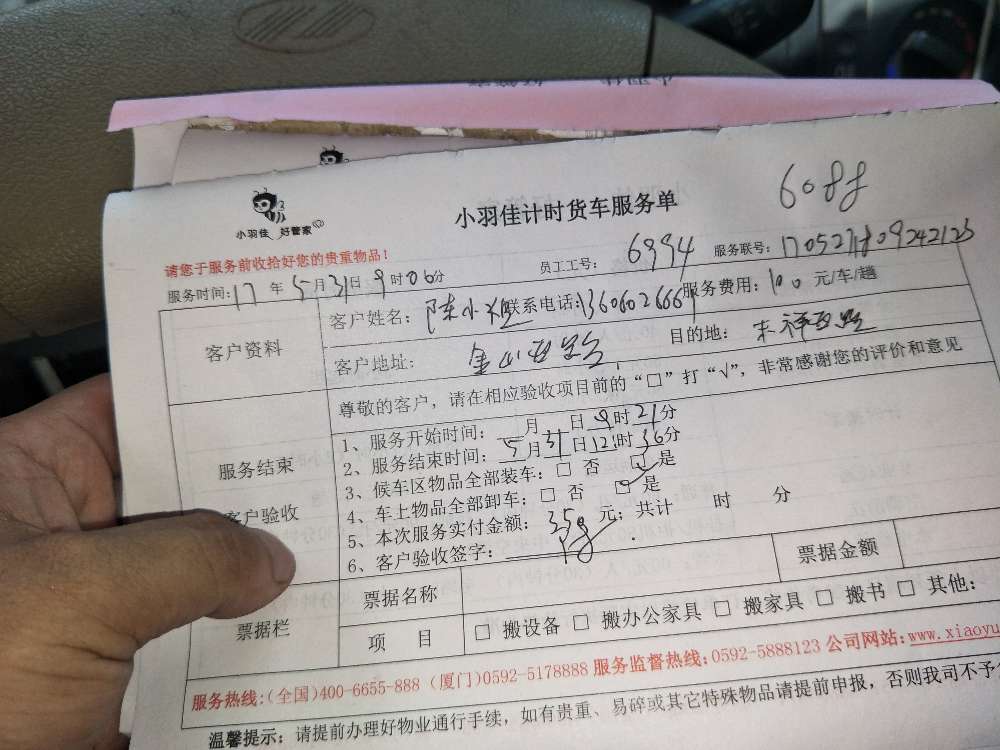 6088
小羽佳 好管家
小羽佳计时货车服务单
请您于服务前收拾好您的贵重物品！
员工工号： 6994 服务联号：
服务时间：17 年 5月31日 9 时06分
客户资料
客户姓名： 陈小姐 联系电话： 服务费用：100 元/车/趟
客户地址： 金山西路 目的地：
尊敬的客户，请在相应验收项目前的“□”打“√”，非常感谢您的评价和意见
服务结束
客户验收
1、服务开始时间： 月 日 9时21分
2、服务结束时间： 5月31日12时36分
3、候车区物品全部装车：□ 否 □ 是
4、车上物品全部卸车：□ 否 □ 是
5、本次服务实付金额： 元；共计 时 分
6、客户验收签字：
票据栏
票据名称
票据金额
项 目
□ 搬设备 □ 搬办公家具 □ 搬家具 □ 搬书 □ 其他：
服务热线：(全国)400-6655-888 (厦门)0592-5178888 服务监督热线：0592-5888123 公司网站：www.xiaoyu
温馨提示：请提前办理好物业通行手续，如有贵重、易碎或其它特殊物品请提前申报，否则我司不予